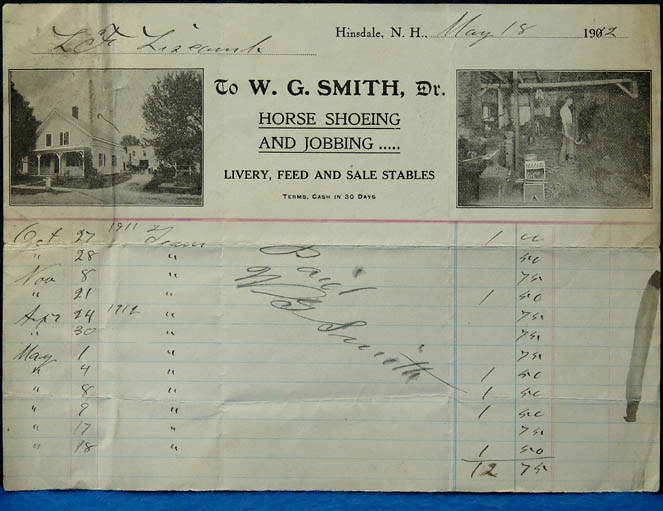 Hinsdale, N. H., May 18 1912
L F Liscomb
To W. G. SMITH, Dr.
HORSE SHOEING
AND JOBBING .....
LIVERY, FEED AND SALE STABLES
TERMS, CASH IN 30 DAYS
Oct 27 1911 Team 1 00
" 28 " 50
Nov 8 " 75
" 21 " 1 50
Apr 24 1912 " 75
" 30 " 75
May 1 " 75
" 4 " 1 50
" 8 " 1 50
" 9 " 1 50
" 17 " 75
" 18 " 1 50
12 75
Paid
W G Smith